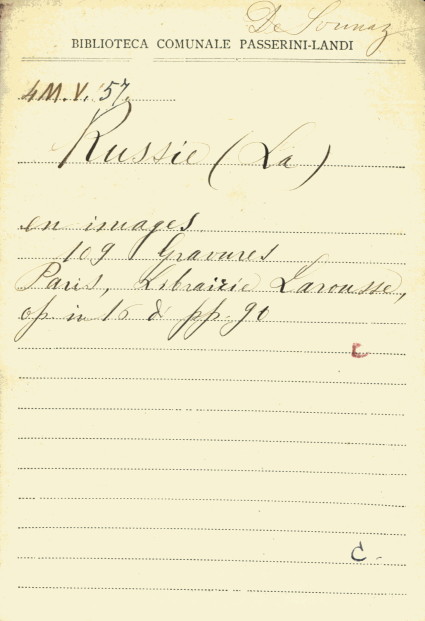 De Sonnaz
BIBLIOTECA COMUNALE PASSERINI-LANDI
4M.V.57.
Russie (La)
en images
109 Gravures
Paris, Librairie Larousse,
op in 16 d pp. 90
C
C.